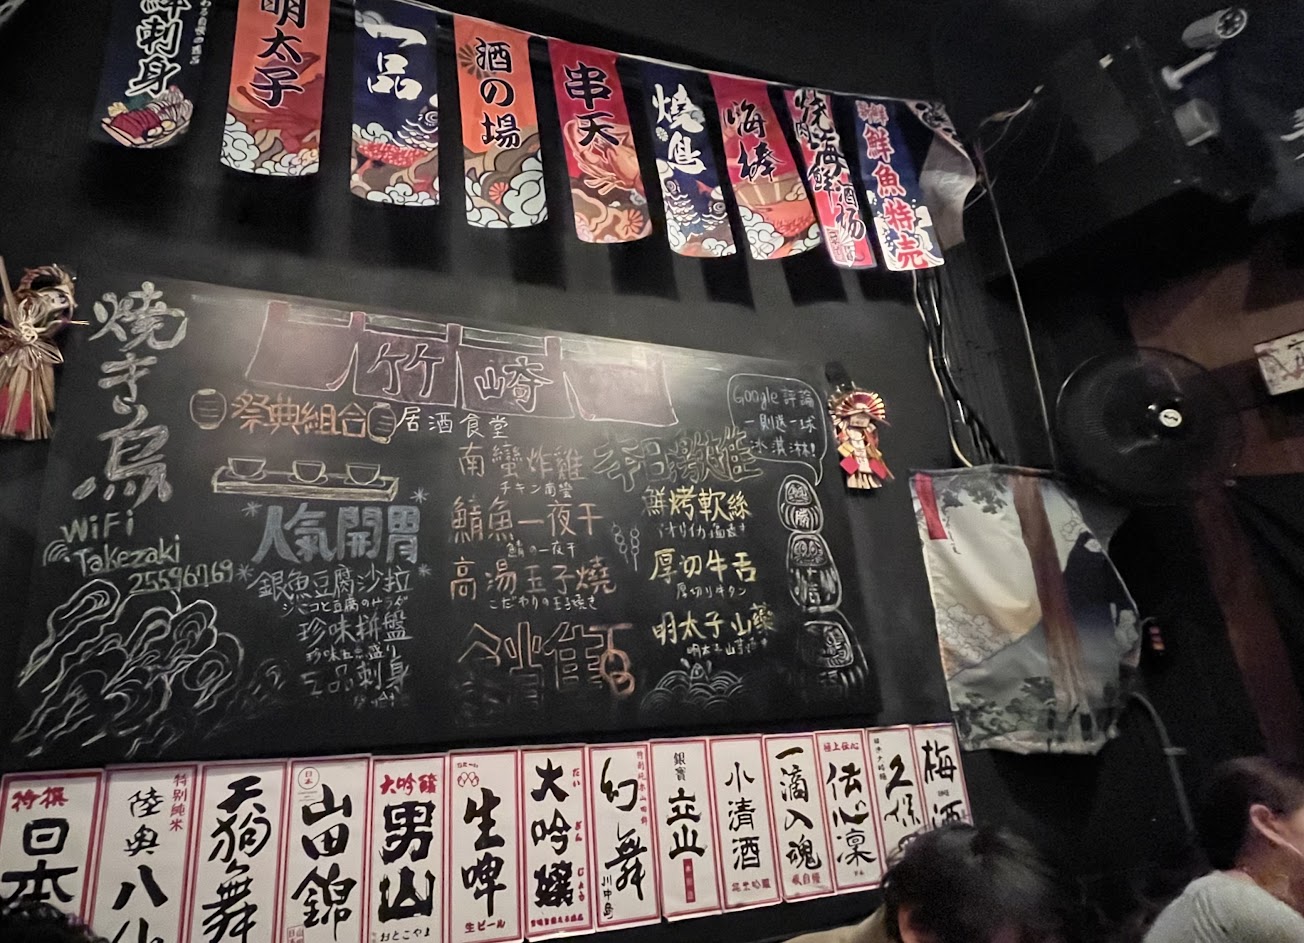 鮮刺身
明太子
一品
酒の場
串天
焼鳥
海
焼肉海鮮酒场
鮮魚特売
焼き鳥
竹崎
居酒食堂
WiFi
Takezaki
25596769
祭典組合
人氣開胃
銀魚豆腐沙拉
珍味拼盤
珍味五品盛り
刺身
南蠻炸雞
チキン南蛮
鯖魚一夜干
鯖の一夜干
高湯玉子燒
こだわりの玉子焼き
本日激推
鮮烤軟絲
厚切牛舌
厚切り牛タン
明太子山藥
Google 評論
一則送一球
冰淇淋!
特撰
日本
特別純米
陸奥八仙
天狗舞
山田錦
大吟醸
男山
おとこやま
生啤
生ビール
大吟釀
だい
ぎん
じょう
幻舞
川中島
銀嶺
立山
小清酒
一滴入魂
極上伝心
伝心凛
久保
梅酒